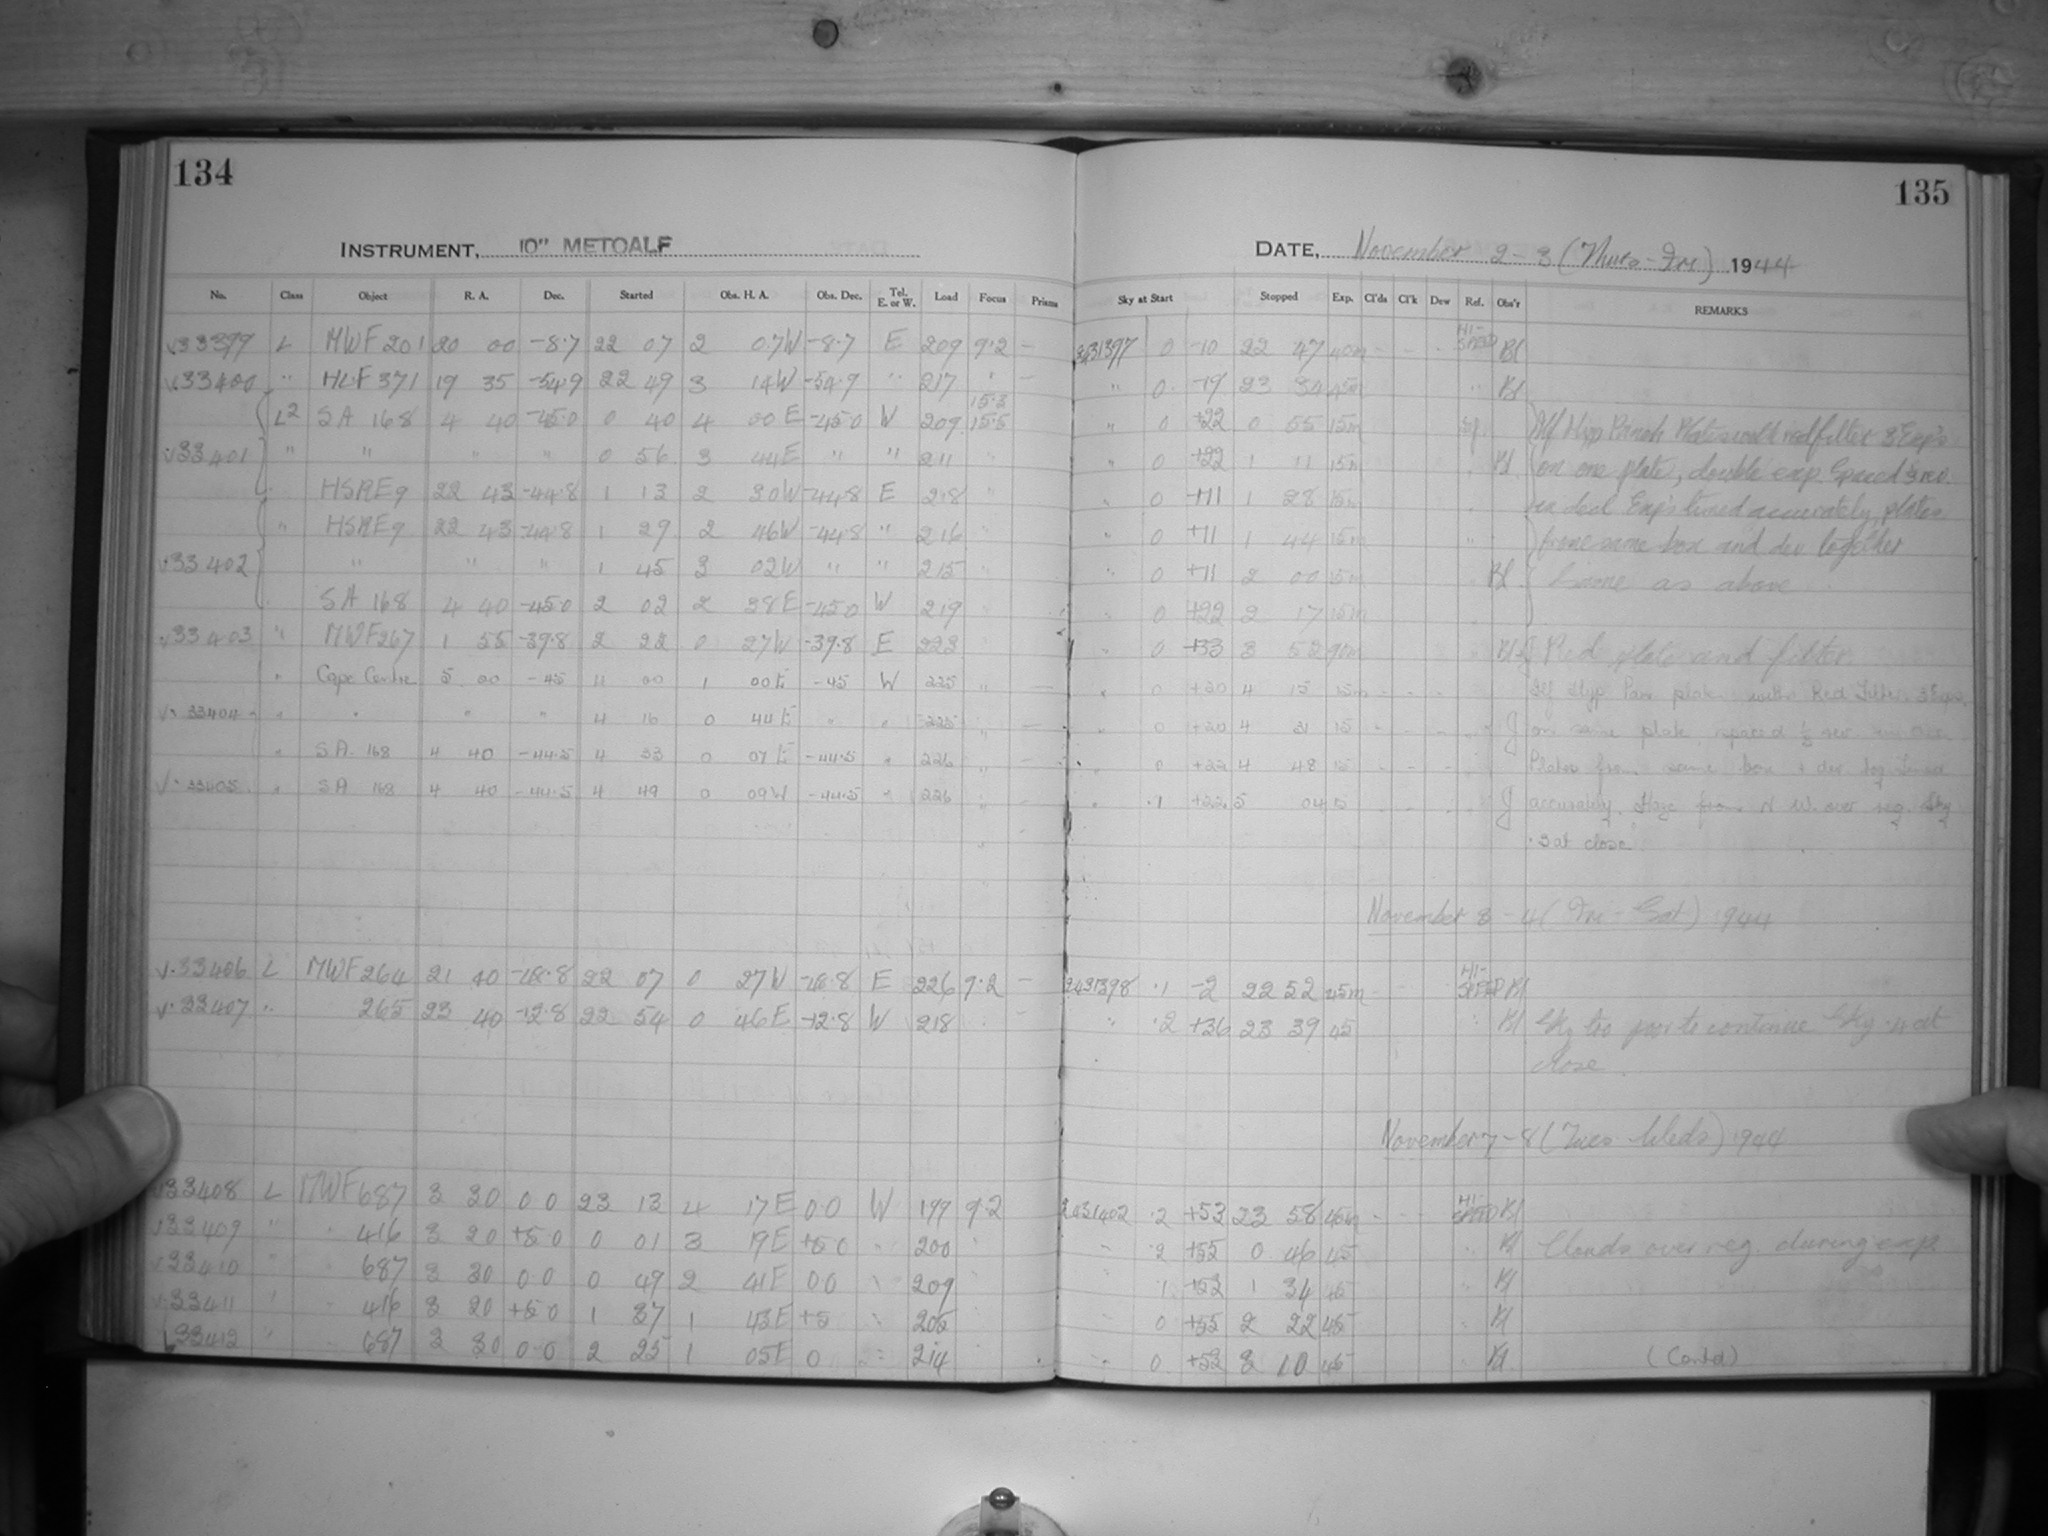 134
INSTRUMENT, 10" METCALF
No. Class Object R. A. Dec. Started Obs. H. A. Obs. Dec. Tel. E. or W. Load Focus Prisms
33399 L MWF 201 20 00 -8.7 22 07 2 07W -8.7 E 209 9.2 —
33400 " HLF 371 19 35 -54.9 22 49 3 14W -54.9 " 217 " —
L2 SA 168 4 40 -45.0 0 40 4 00E -45.0 W 209 15.5
33401 " " " " 0 56 3 44E " " 211 "
HSREg 22 43 -44.8 1 13 2 30W -44.8 E 218 "
" HSREg 22 43 -44.8 1 29 2 46W -44.8 " 216 "
33402 " " " 1 45 3 02W " " 215 "
SA 168 4 40 -45.0 2 02 2 38E -45.0 W 219 "
33403 " MWF 267 1 55 -39.8 2 22 0 27W -39.8 E 222
" Cape Centre 5 00 -45 4 00 1 00E -45 W 225 " —
33404 " " " " 4 16 0 44E " " 225 " —
" SA 168 4 40 -44.5 4 33 0 07E -44.5 " 226 " —
33405 " SA 168 4 40 -44.5 4 49 0 09W -44.5 " 226 " —
33406 L MWF 264 21 40 -18.8 22 07 0 27W -18.8 E 226 9.2 —
33407 " 265 23 40 -12.8 22 54 0 46E -12.8 W 218
33408 L MWF 687 3 30 0 0 23 13 4 17E 0.0 W 199 9.2
33409 " " 416 3 20 +5 0 0 01 3 19E +5 0 " 200
33410 " " 687 3 30 0 0 0 49 2 41E 0.0 " 209
33411 " " 416 3 20 +5 0 1 37 1 43E +5 " 205
33412 " " 687 3 30 0 0 2 25 1 05E 0 " 214
135
DATE, November 2-3 (Thurs-Fri) 1944
Sky at Start Stopped Exp. Cl'ds Cl'k Dew Ref. Obs'r REMARKS
2431397 0 -10 22 47 40m - - - HI-SPEED Bl
" 0 -19 23 34 45m " Bl
" 0 +22 0 55 15m Hyp Panch Plates with red filter 3 Exp's
" 0 +22 1 11 15m Bl on one plate, double exp. Spaced
" 0 +11 1 28 15m in decl Exp's timed accurately, plates
" 0 +11 1 44 15m " from same box and dev together
" 0 +11 2 00 15m Bl Same as above
" 0 +22 2 17 15m
" 0 +33 3 52 90m Red plate and filter
" 0 +20 4 15 15m - - - Hyp Pan plate with Red Filter. 3 Exps
" 0 +20 4 31 15 - - - " J on same plate, spaced
" 0 +22 4 48 15 - - - Plates from same box + dev tog. Timed
" .1 +22.5 5 04 15 - - - " J accurately. Haze from N W. over reg. Sky
.3 at close
November 3-4 (Fri-Sat) 1944
2431398 .1 -2 22 52 45m - - HI-SPEED Bl
" .2 +36 23 39 45 " Bl Sky too poor to continue Sky .4 at
close.
November 7-8 (Tues-Weds) 1944
2431402 .2 +53 23 58 45m - - - HI-SPEED Bl
" .2 +55 0 46 45 " Bl Clouds over reg. during exp.
1 +53 1 34 45 " Bl
" 0 +55 2 22 45 " Bl
" 0 +53 3 10 45 " Bl (Contd)